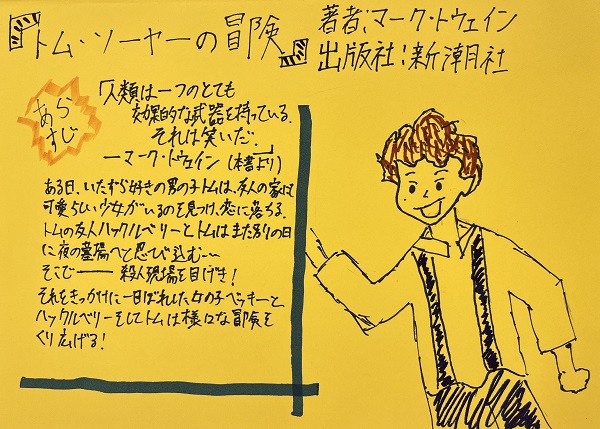 『トム・ソーヤーの冒険』
著者:マーク・トウェイン
出版社:新潮社
あらすじ
「人類は一つのとても
効果的な武器を持っている。
それは笑いだ。
ーマーク・トウェイン(本書より)
ある日、いたずら好きの男の子トムは、友人の家に
可愛らしい少女がいるのを見つけ、恋に落ちる。
トムの友人ハックルベリーとトムはまた別の日
に夜の墓場へと忍び込む…
そこで―― 殺人現場を目げき!
それをきっかけに一目ぼれした女の子ベッキーと
ハックルベリーそしてトムは様々な冒険を
くり広げる!